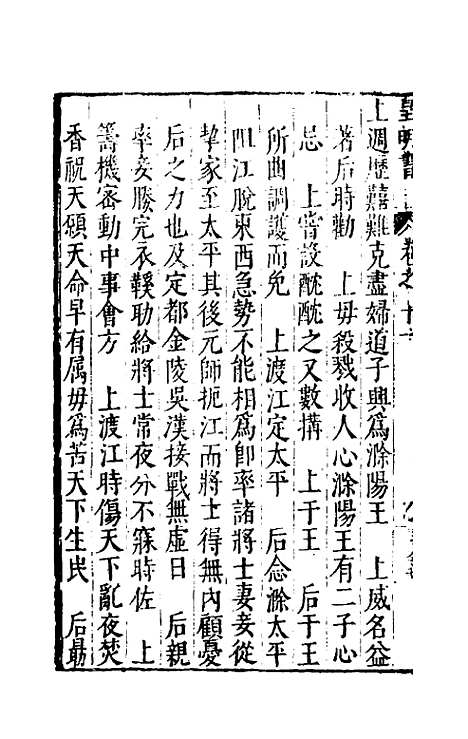 上遇歷囏難克盡婦道子興爲滁陽王　上威名益
著后時勸　上毋殺戮收人心滁陽王有二子心
忌　上嘗設酖酖之又數搆　上于王　后于王
所曲調護而免　上渡江定太平　后念滁太平
阻江脫東西急勢不能相爲卽率諸將士妻妾從
挈家至太平其後元師扼江而將士得無內顧憂
后之力也及定都金陵吳漢接戰無虛日　后親
率妾媵完衣鞵助給將士常夜分不寐時佐　上
籌機密動中事會方　上渡江時傷天下亂夜焚
香祝天願天命早有属毋爲苦天下生民　后最